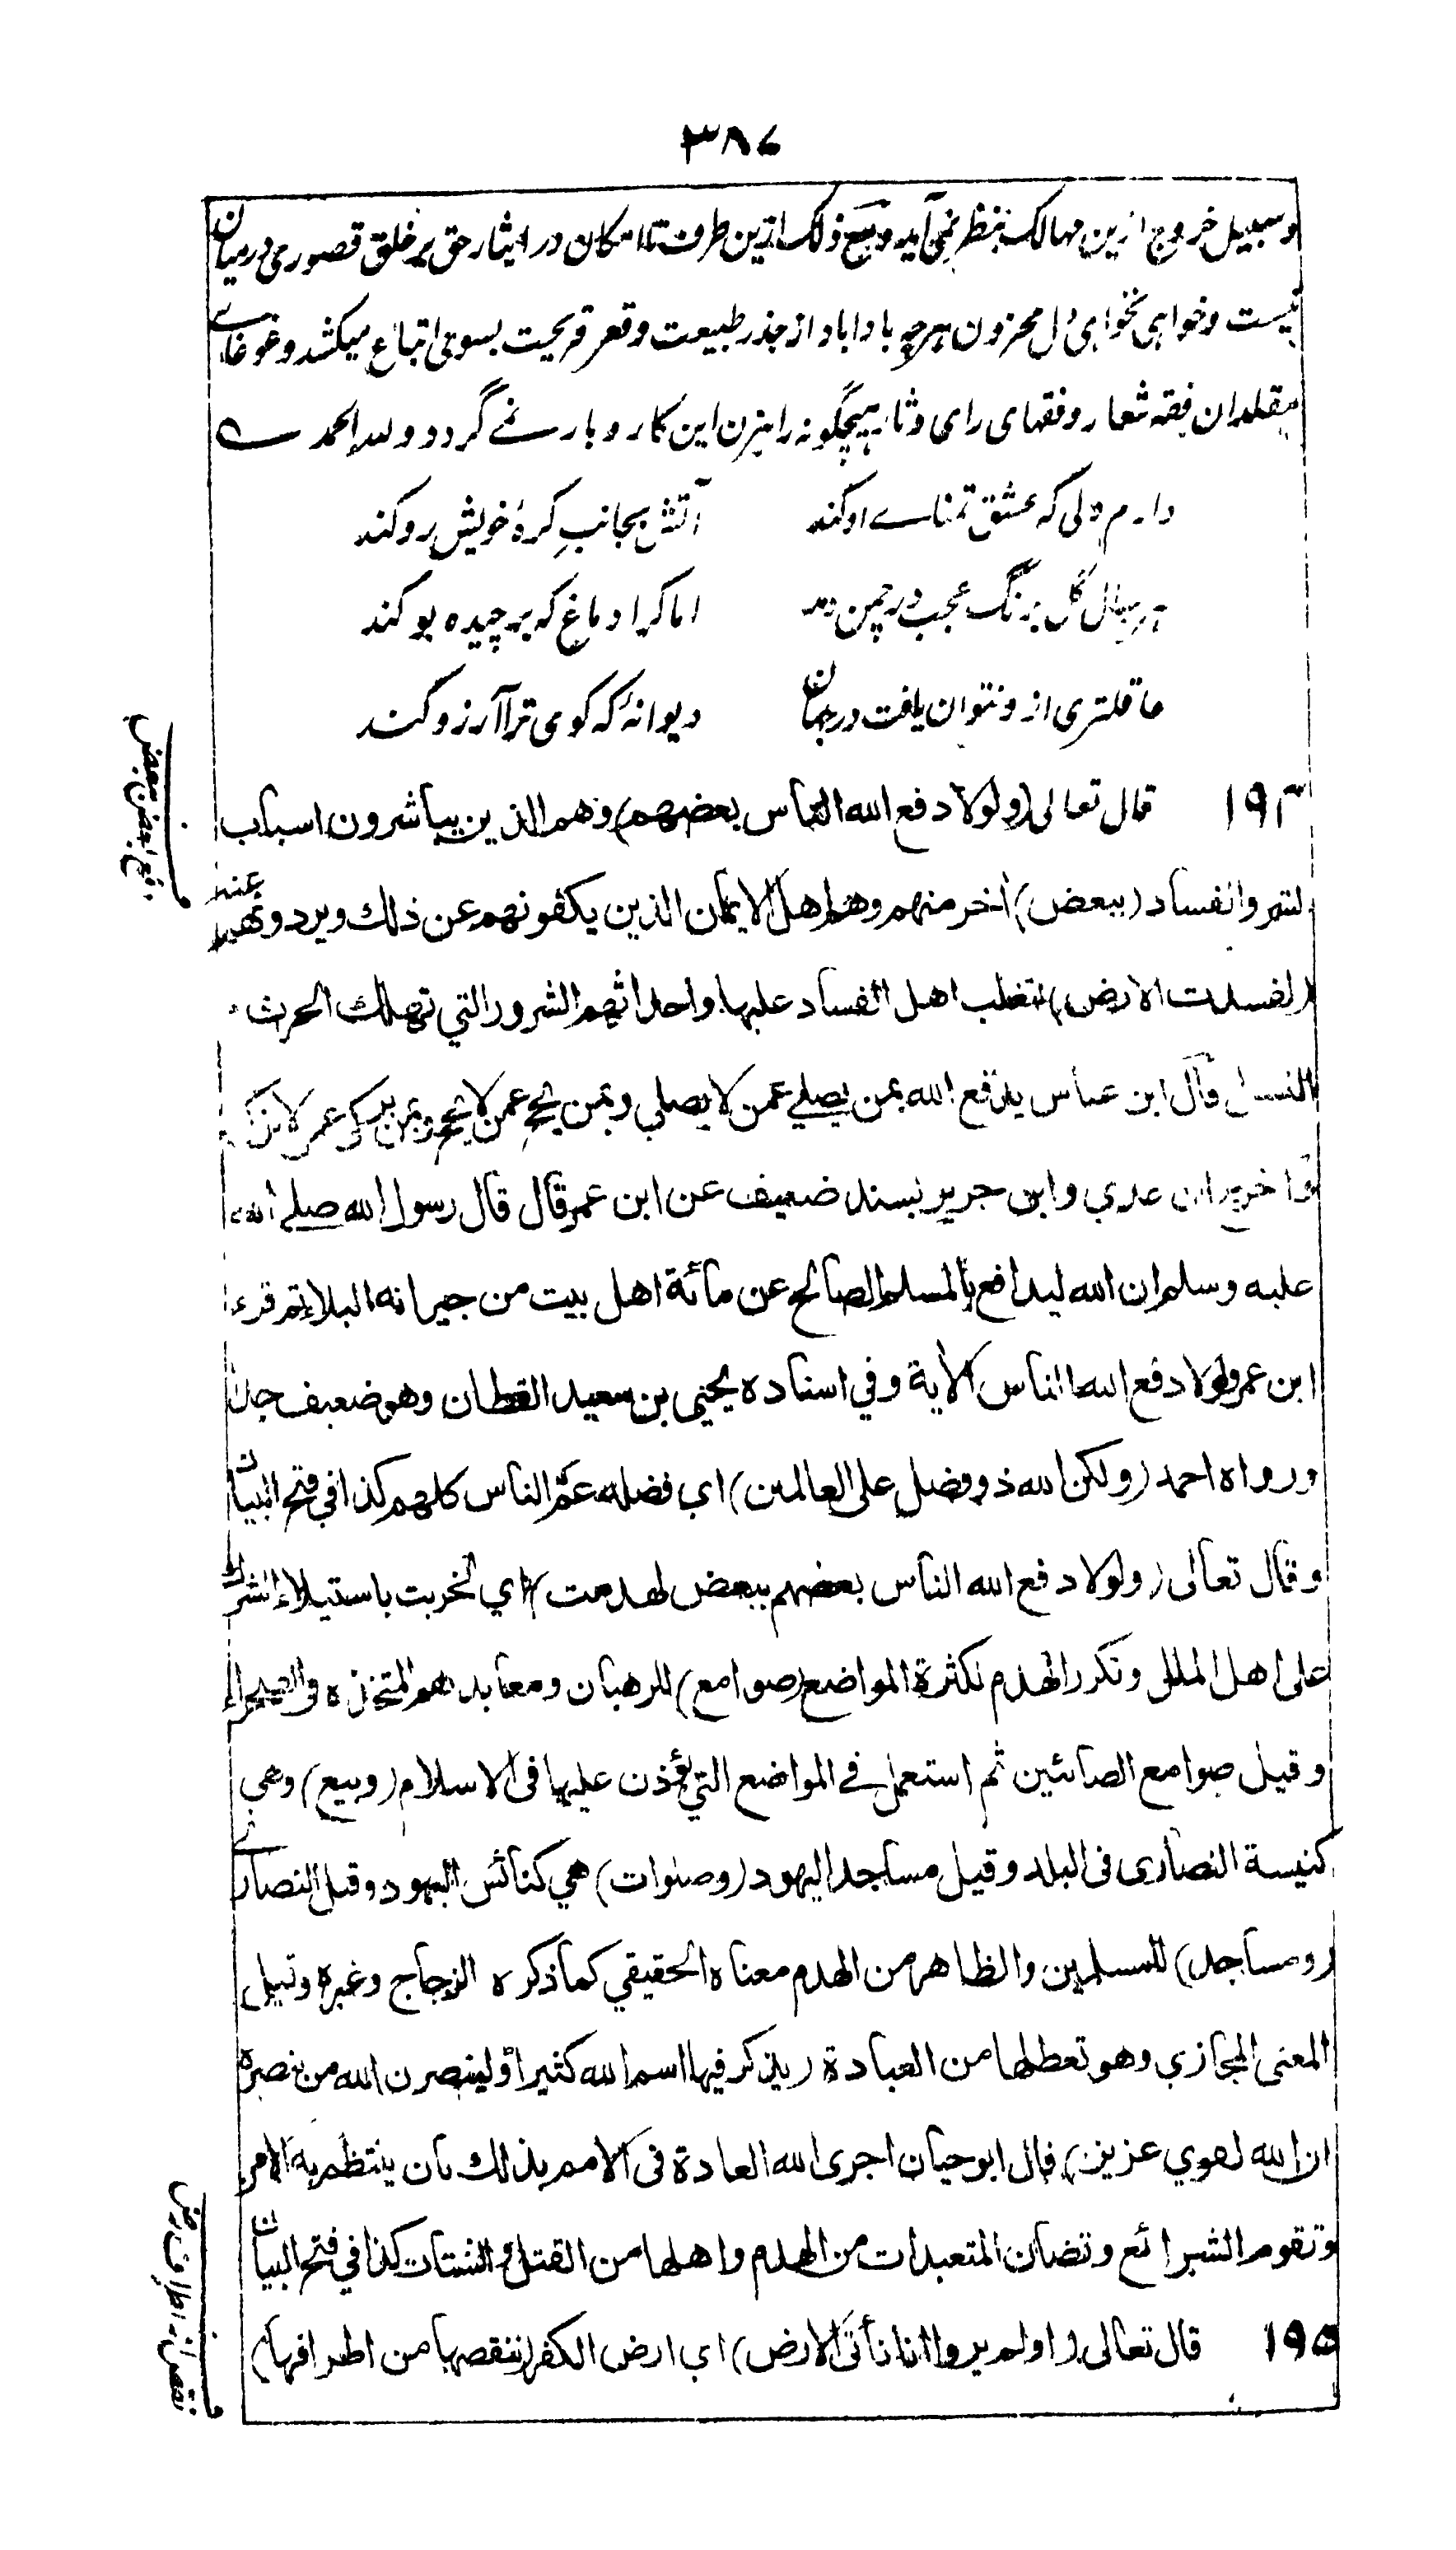 ٣٨٦
و سبیل خروج ازین مهالک بنظر نمی آید و مع ذلک ازین طرف تا امکان در ایثار حق بر خلق قصوری در میان
نیست و خواهی نخواهی دل محزون هرچه باداباد از جذر طبیعت و قعر قریحت بسوی اتباع میکشد و غوغای
مقلدان فقه شعار و فقهای رای دثار هیچگونه راهزن این کار و بار نمی گردد و لله الحمد ے
دارم دلی که عشق تمنای او کند آتش بجانبِ کرهٔ خویش رو کند
هر سال گل برنگ عجب در چمن دمد اما کرا دماغ که برچیده بو کند
عاقلتری ازو نتوان یافت در جهان دیوانهٔ که کوی ترا آرزو کند
١٩٤ قال تعالى (ولولا دفع الله الناس بعضهم) وهم الذين يباشرون اسباب
الشر والفساد (ببعض) أخر منهم وهم اهل الايمان الذين يكفونهم عن ذلك ويردونهم عنه
(لفسدت الارض) بتغلب اهل الفساد عليها واحداثهم الشرور التي تهلك الحرث
والنسل قال ابن عباس يدفع الله بمن يصلي عمن لا يصلي وبمن يحج عمن لا يحج وبمن يزكي عمن لا يزكي
واخرج ابن عدي وابن جرير بسند ضعيف عن ابن عمر قال قال رسول الله صلى الله
عليه وسلم ان الله ليدافع بالمسلم الصالح عن مائة اهل بيت من جيرانه البلاء ثم قرء
ابن عمر ولولا دفع الله الناس الأية وفي اسناده يحيى بن سعيد القطان وهو ضعيف جدا
ورواه احمد (ولكن الله ذو فضل على العالمين) اي فضله عمّ الناس كلهم كذا في فتح البيان
وقال تعالى (ولولا دفع الله الناس بعضهم ببعض لهدمت) اي لخربت باستيلاء الشرك
على اهل الملل وتكرر الهدم لكثرة المواضع (صوامع) للرهبان ومعابدهم المتخذة في الصحراء
وقيل صوامع الصابئين ثم استعمل في المواضع التي يؤذن عليها في الاسلام (وبيع) وهي
كنيسة النصارى في البلد وقيل مساجد اليهود (وصلوات) هي كنائس اليهود وقيل النصارى
(ومساجد) للمسلمين والظاهر من الهدم معناه الحقيقي كما ذكره الزجاج وغيره وقيل
المعنى المجازي وهو تعطلها من العبادة (يذكر فيها اسم الله كثيرا ولينصرن الله من ينصره
ان الله لقوي عزيز) قال ابو حيان اجرى الله العادة في الامم بذلك بان ينتظم به الامر
وتقوم الشرائع وتصان المتعبدات من الهدم واهلها من القتل والشتات كذا في فتح البيان
١٩٥ قال تعالى (اولم يروا انا نأتي الارض) اي ارض الكفر (ننقصها من اطرافها)
دفع بعض ببعض
نقص اطراف ارض